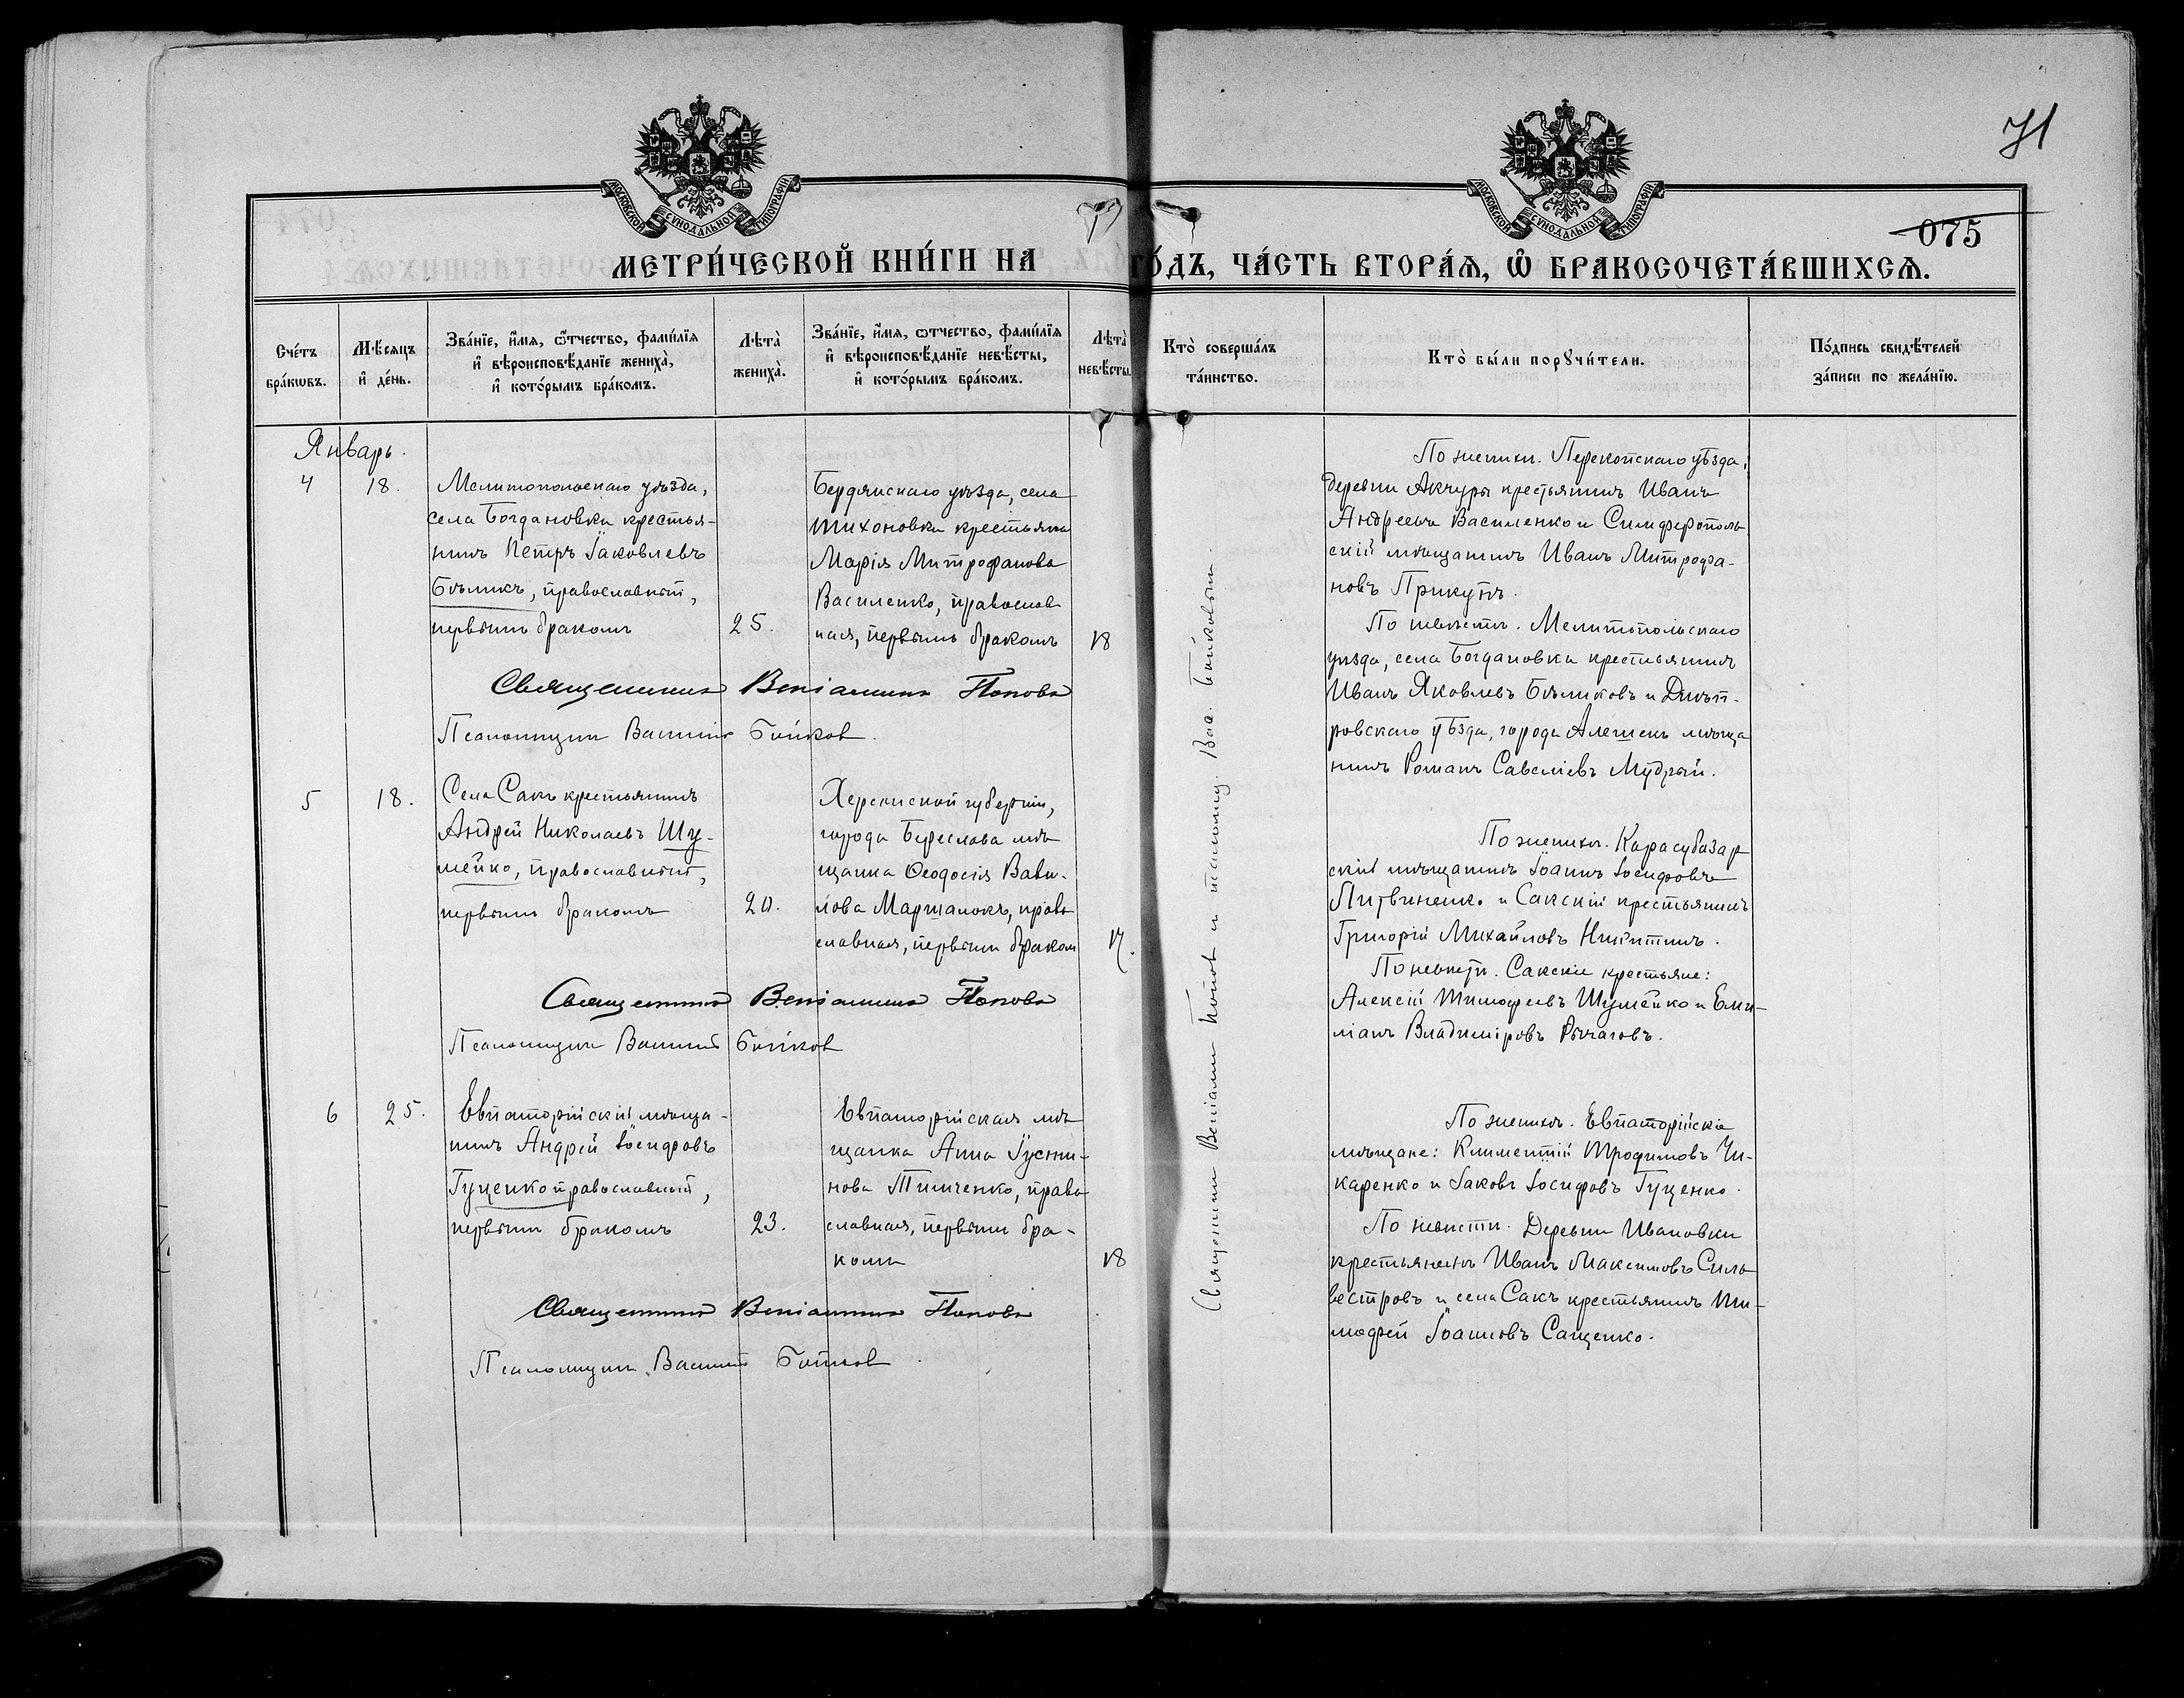 71
МОСКОВСКОЙ СѴНОДАЛЬНОЙ ТИПОГРАФІИ
МОСКОВСКОЙ СѴНОДАЛЬНОЙ ТИПОГРАФІИ
075
МЕТРИ́ЧЕСКОЙ КНИ́ГИ НА ГО́ДЪ, ЧА́СТЬ ВТОРА́Ѧ, Ѽ БРАКОСОЧЕТА́ВШИХСѦ.
Сче́тъ бра́кѡвъ.
Мѣ́сяцъ и҆ де́нь.
Зва́нїе, и҆́мя, ѻ҆́тчество, фами́лїя и҆ вѣроисповѣ́данїе жениха̀, и҆ кото́рымъ бра́комъ.
Лѣта̀ жениха̀.
Зва́нїе, и҆́мя, ѻ҆́тчество, фами́лїя и҆ вѣроисповѣ́данїе невѣ́сты, и҆ кото́рымъ бра́комъ.
Лѣта̀ невѣ́сты.
Кто̀ соверша́лъ та́инство.
Кто̀ бы́ли порꙋчи́тели.
По́дпись свидѣ́телей за́писи по жела́нїю.
Январь.
4
18.
Мелитопольскаго уѣзда,
села Богдановки крестья-
нинъ Петръ Іаковлевъ
Бѣликъ, православный,
первымъ бракомъ
25.
Бердянскаго уѣзда, села
Тихоновки крестьянка
Марія Митрофанова
Василенко, православ
ная, первымъ бракомъ
18
Священникъ Веніаминъ Поповъ
Псаломщикъ Василій Бойков.
По женихѣ. Перекопскаго уѣзда,
деревни Акчуры крестьянинъ Иванъ
Андреевъ Василенко и Симферополь
скій мѣщанинъ Иванъ Митрофа-
новъ Прикутъ.
По невѣстѣ. Мелитопольскаго
уѣзда, села Богдановки крестьянинъ
Иванъ Яковлевъ Бѣликовъ и Днѣп-
ровскаго уѣзда, города Алешекъ мѣща
нинъ Романъ Савеліевъ Мудрый.
5
18.
Села Сакъ крестьянинъ
Андрей Николаевъ Шу-
мейко, православный,
первымъ бракомъ
20.
Херсонской губерніи,
города Береслава мѣ
щанка Ѳеодосія Вави-
лова Маршалокъ, право
славная, первымъ браком
17.
Священникъ Веніаминъ Поповъ
Псаломщикъ Василій Бойков
По женихѣ. Карасубазар
скій мѣщанинъ Іоаннъ Іосифовъ
Литвиненко и Сакскій крестьянинъ
Григорій Михайловъ Никитинъ.
По невѣстѣ. Сакскіе крестьяне:
Алексій Тимофеевъ Шумейко и Еми-
ліанъ Владиміровъ Рычаговъ.
6
25.
Евпаторійскій мѣща-
нинъ Андрей Іосифовъ
Гуценко православный,
первымъ бракомъ
23.
Евпаторійская мѣ
щанка Анна Іусти-
нова Тимченко, право
славная, первымъ бра-
комъ
18
Священникъ Веніаминъ Поповъ
Псаломщикъ Василій Бойков
По женихѣ. Евпаторійскіе
мѣщане: Климентій Трофимовъ Чи-
каренко и Іаковъ Іосифовъ Гуценко.
По невѣстѣ. Деревни Ивановки
крестьянинъ Иванъ Максимовъ Силь
вестровъ и села Сакъ крестьянинъ Ти-
мофей Іоанновъ Сащенко.
Священник Веніамин Попов и псаломщ. Вас. Бойковым.